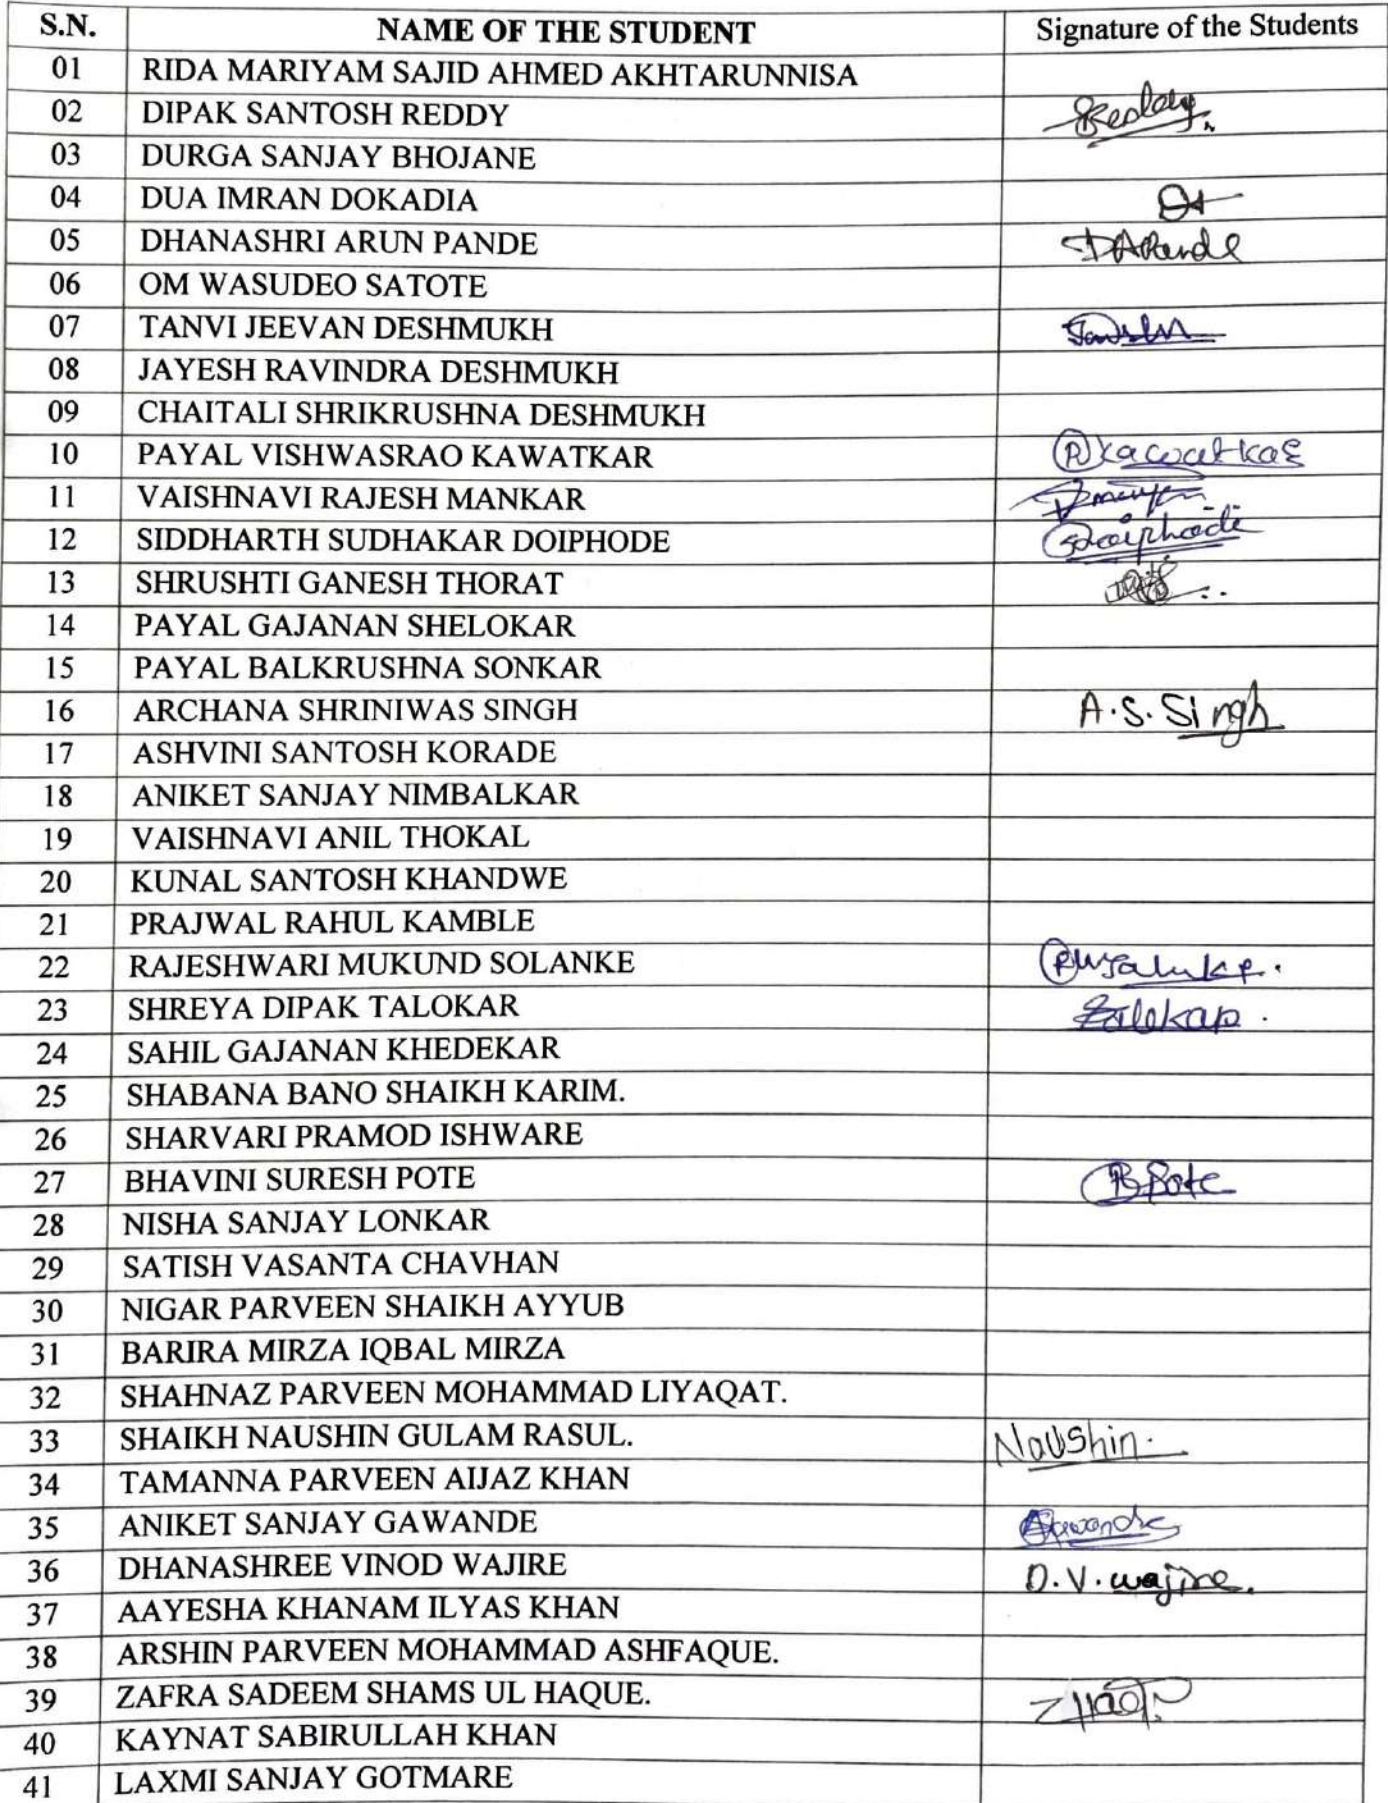 S.N. NAME OF THE STUDENT Signature of the Students
01 RIDA MARIYAM SAJID AHMED AKHTARUNNISA
02 DIPAK SANTOSH REDDY Reddy
03 DURGA SANJAY BHOJANE
04 DUA IMRAN DOKADIA
05 DHANASHRI ARUN PANDE DAPande
06 OM WASUDEO SATOTE
07 TANVI JEEVAN DESHMUKH
08 JAYESH RAVINDRA DESHMUKH
09 CHAITALI SHRIKRUSHNA DESHMUKH
10 PAYAL VISHWASRAO KAWATKAR PKawatkar
11 VAISHNAVI RAJESH MANKAR
12 SIDDHARTH SUDHAKAR DOIPHODE SDoiphode
13 SHRUSHTI GANESH THORAT
14 PAYAL GAJANAN SHELOKAR
15 PAYAL BALKRUSHNA SONKAR
16 ARCHANA SHRINIWAS SINGH A.S. Singh
17 ASHVINI SANTOSH KORADE
18 ANIKET SANJAY NIMBALKAR
19 VAISHNAVI ANIL THOKAL
20 KUNAL SANTOSH KHANDWE
21 PRAJWAL RAHUL KAMBLE
22 RAJESHWARI MUKUND SOLANKE
23 SHREYA DIPAK TALOKAR
24 SAHIL GAJANAN KHEDEKAR
25 SHABANA BANO SHAIKH KARIM.
26 SHARVARI PRAMOD ISHWARE
27 BHAVINI SURESH POTE BPote
28 NISHA SANJAY LONKAR
29 SATISH VASANTA CHAVHAN
30 NIGAR PARVEEN SHAIKH AYYUB
31 BARIRA MIRZA IQBAL MIRZA
32 SHAHNAZ PARVEEN MOHAMMAD LIYAQAT.
33 SHAIKH NAUSHIN GULAM RASUL. Naushin.
34 TAMANNA PARVEEN AIJAZ KHAN
35 ANIKET SANJAY GAWANDE AGawande
36 DHANASHREE VINOD WAJIRE D.V. wajire.
37 AAYESHA KHANAM ILYAS KHAN
38 ARSHIN PARVEEN MOHAMMAD ASHFAQUE.
39 ZAFRA SADEEM SHAMS UL HAQUE. ZHaq
40 KAYNAT SABIRULLAH KHAN
41 LAXMI SANJAY GOTMARE